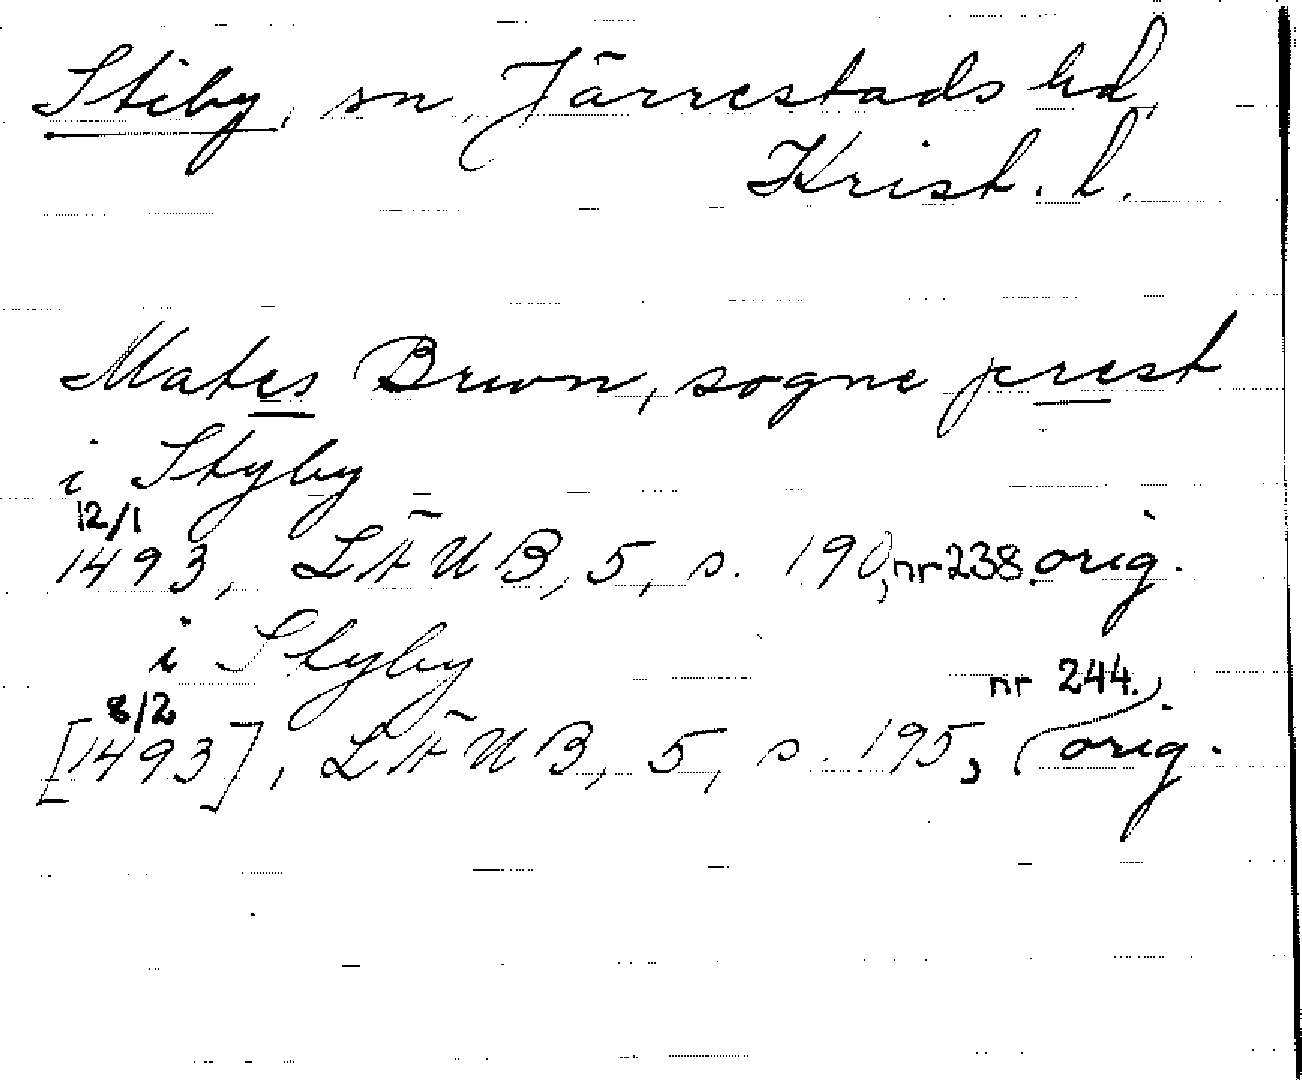 Stiby, sn, Järrestads hd,
Krist. l.
Mates Brwn, sogne prest
i Styby
12/1
1493, LÄUB, 5, s. 190, nr 238. orig.
i Styby
8/2 nr 244.
[1493], LÄUB, 5, s. 195, orig.